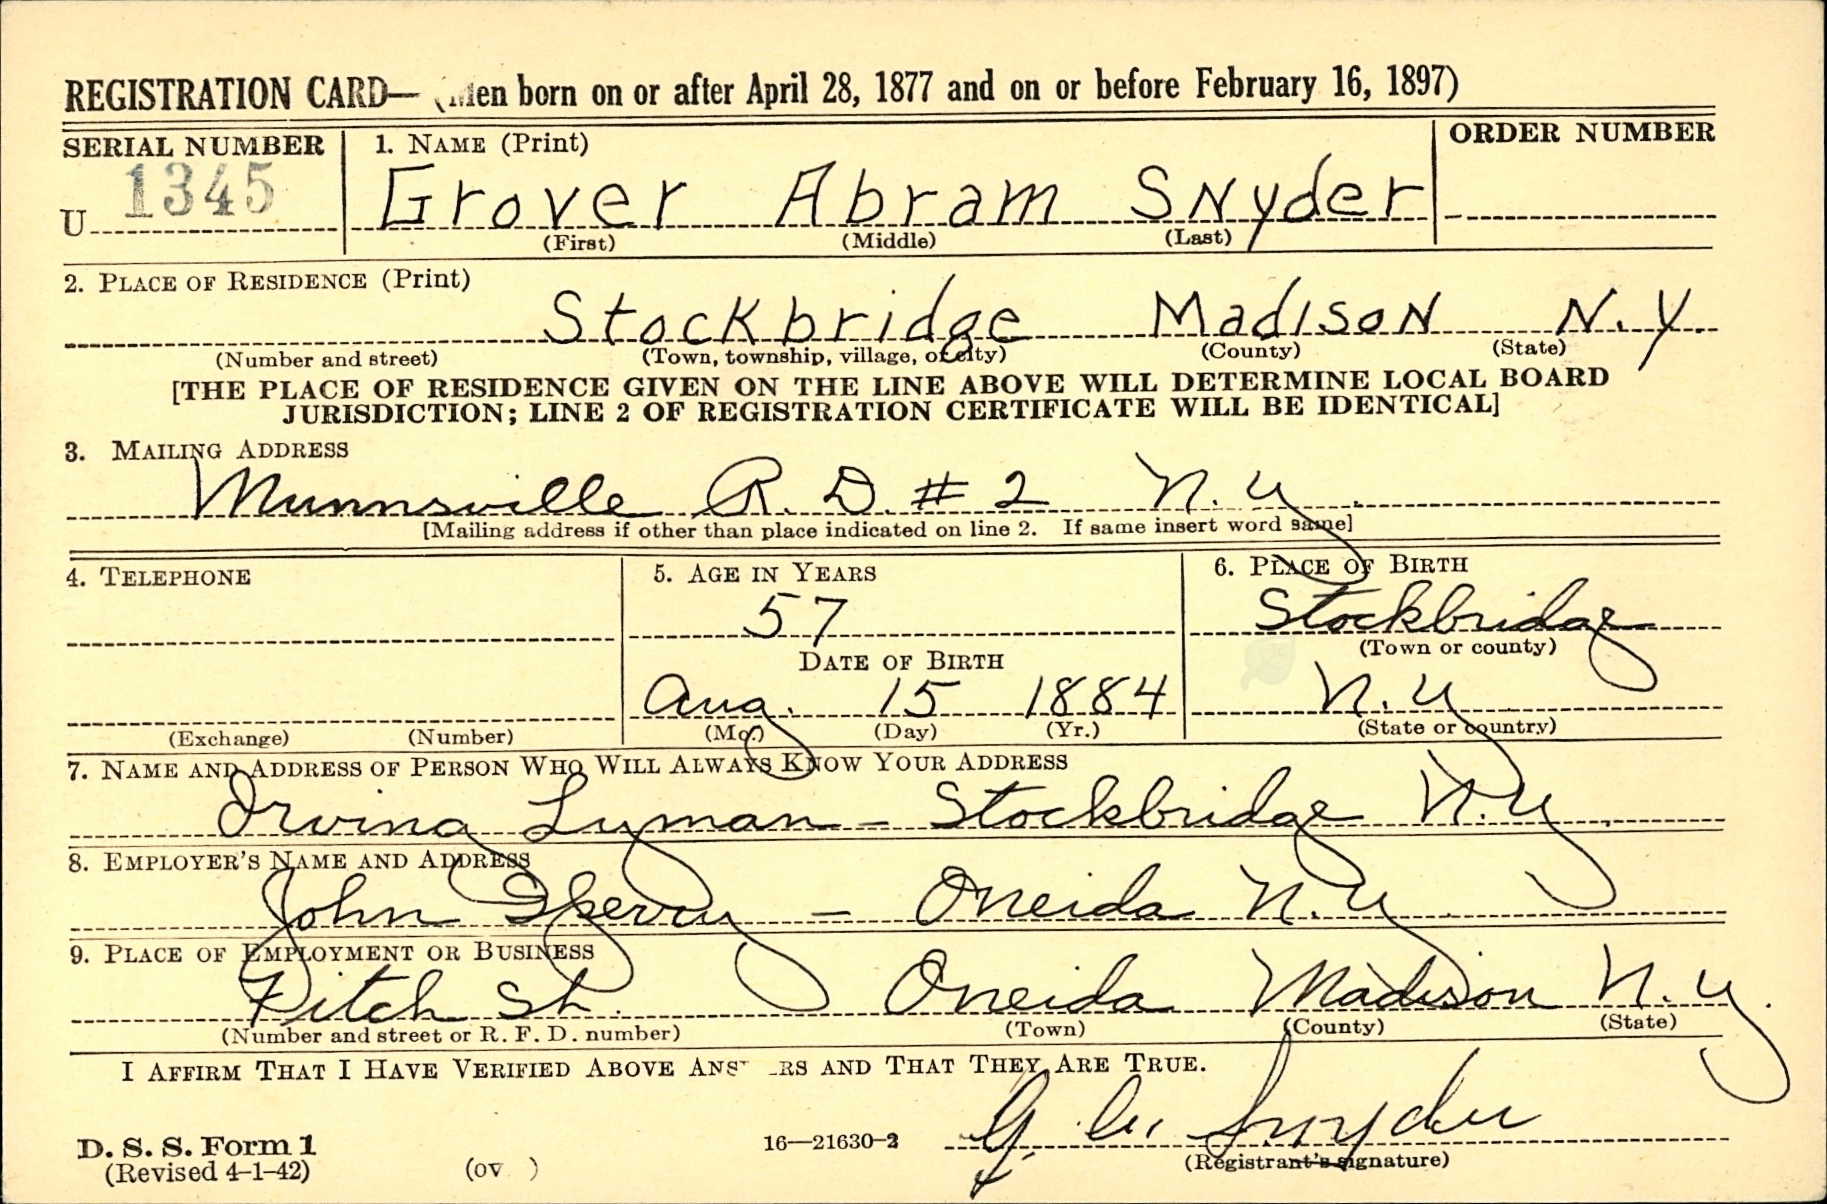 REGISTRATION CARD— (Men born on or after April 28, 1877 and on or before February 16, 1897)
SERIAL NUMBER 1. NAME (Print) ORDER NUMBER
U 1345 Grover Abram Snyder
(First) (Middle) (Last)
2. PLACE OF RESIDENCE (Print)
Stockbridge Madison N.Y.
(Number and street) (Town, township, village, or city) (County) (State)
[THE PLACE OF RESIDENCE GIVEN ON THE LINE ABOVE WILL DETERMINE LOCAL BOARD
JURISDICTION; LINE 2 OF REGISTRATION CERTIFICATE WILL BE IDENTICAL]
3. MAILING ADDRESS
Munnsville R.D. #2 N.Y.
[Mailing address if other than place indicated on line 2. If same insert word same]
4. TELEPHONE 5. AGE IN YEARS 6. PLACE OF BIRTH
57 Stockbridge
DATE OF BIRTH (Town or county)
Aug. 15 1884 N.Y.
(Exchange) (Number) (Mo.) (Day) (Yr.) (State or country)
7. NAME AND ADDRESS OF PERSON WHO WILL ALWAYS KNOW YOUR ADDRESS
Irving Lyman - Stockbridge N.Y.
8. EMPLOYER'S NAME AND ADDRESS
John - Oneida N.Y.
9. PLACE OF EMPLOYMENT OR BUSINESS
Fitch St. Oneida Madison N.Y.
(Number and street or R. F. D. number) (Town) (County) (State)
I AFFIRM THAT I HAVE VERIFIED ABOVE ANSWERS AND THAT THEY ARE TRUE.
G. A. Snyder
D. S. S. Form 1 16—21630-2
(Revised 4-1-42) (ov ) (Registrant's signature)